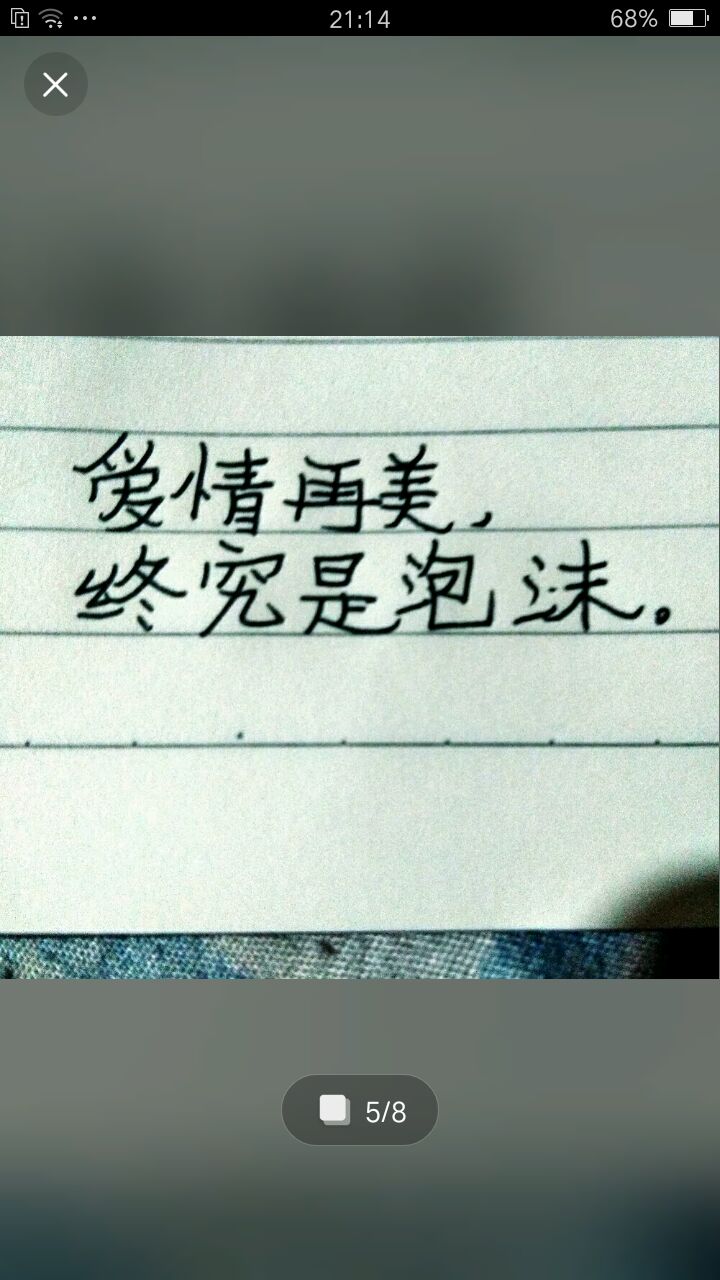 21:14
68%
爱情再美,
终究是泡沫。
5/8